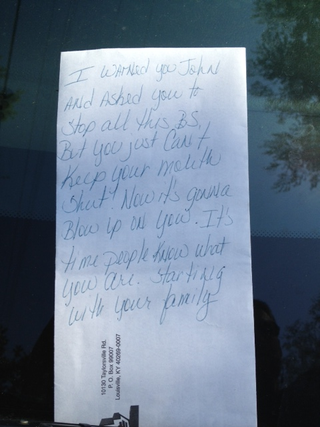 I warned you John
And Asked you to
Stop all this BS,
But you just Can't
Keep your mouth
Shut! Now it's gonna
Blow up on you. It's
time people know what
you are. Starting
with your family
10130 Taylorsville Rd.
P. O. Box 99007
Louisville, KY 40269-0007